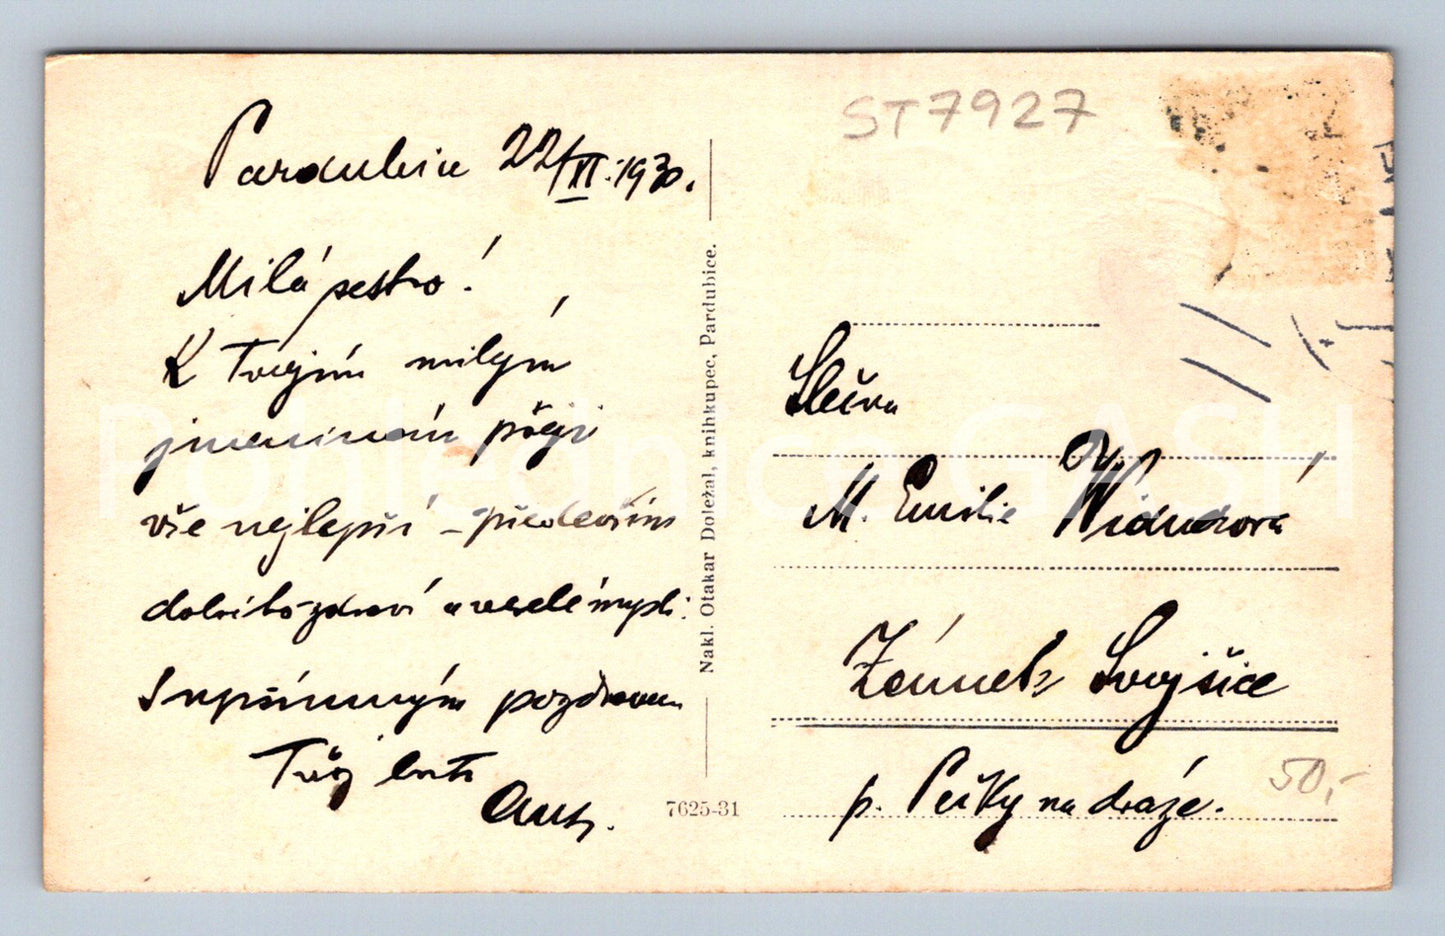 ST7927
Pardubice 22/XI. 1930.
Milá sestro!
K Tvojim milým
jmeninám přeji
vše nejlepší – především
dobrého zdraví a veselé mysli.
S upřímným pozdravem
Tvůj bratr
Ant.
Nakl. Otakar Doležal, knihkupec, Pardubice.
7625-31
Slečna
M. Emilie
Zámek Svojšice
p. Pečky na dráze.
50,-
Pohlednice GASH